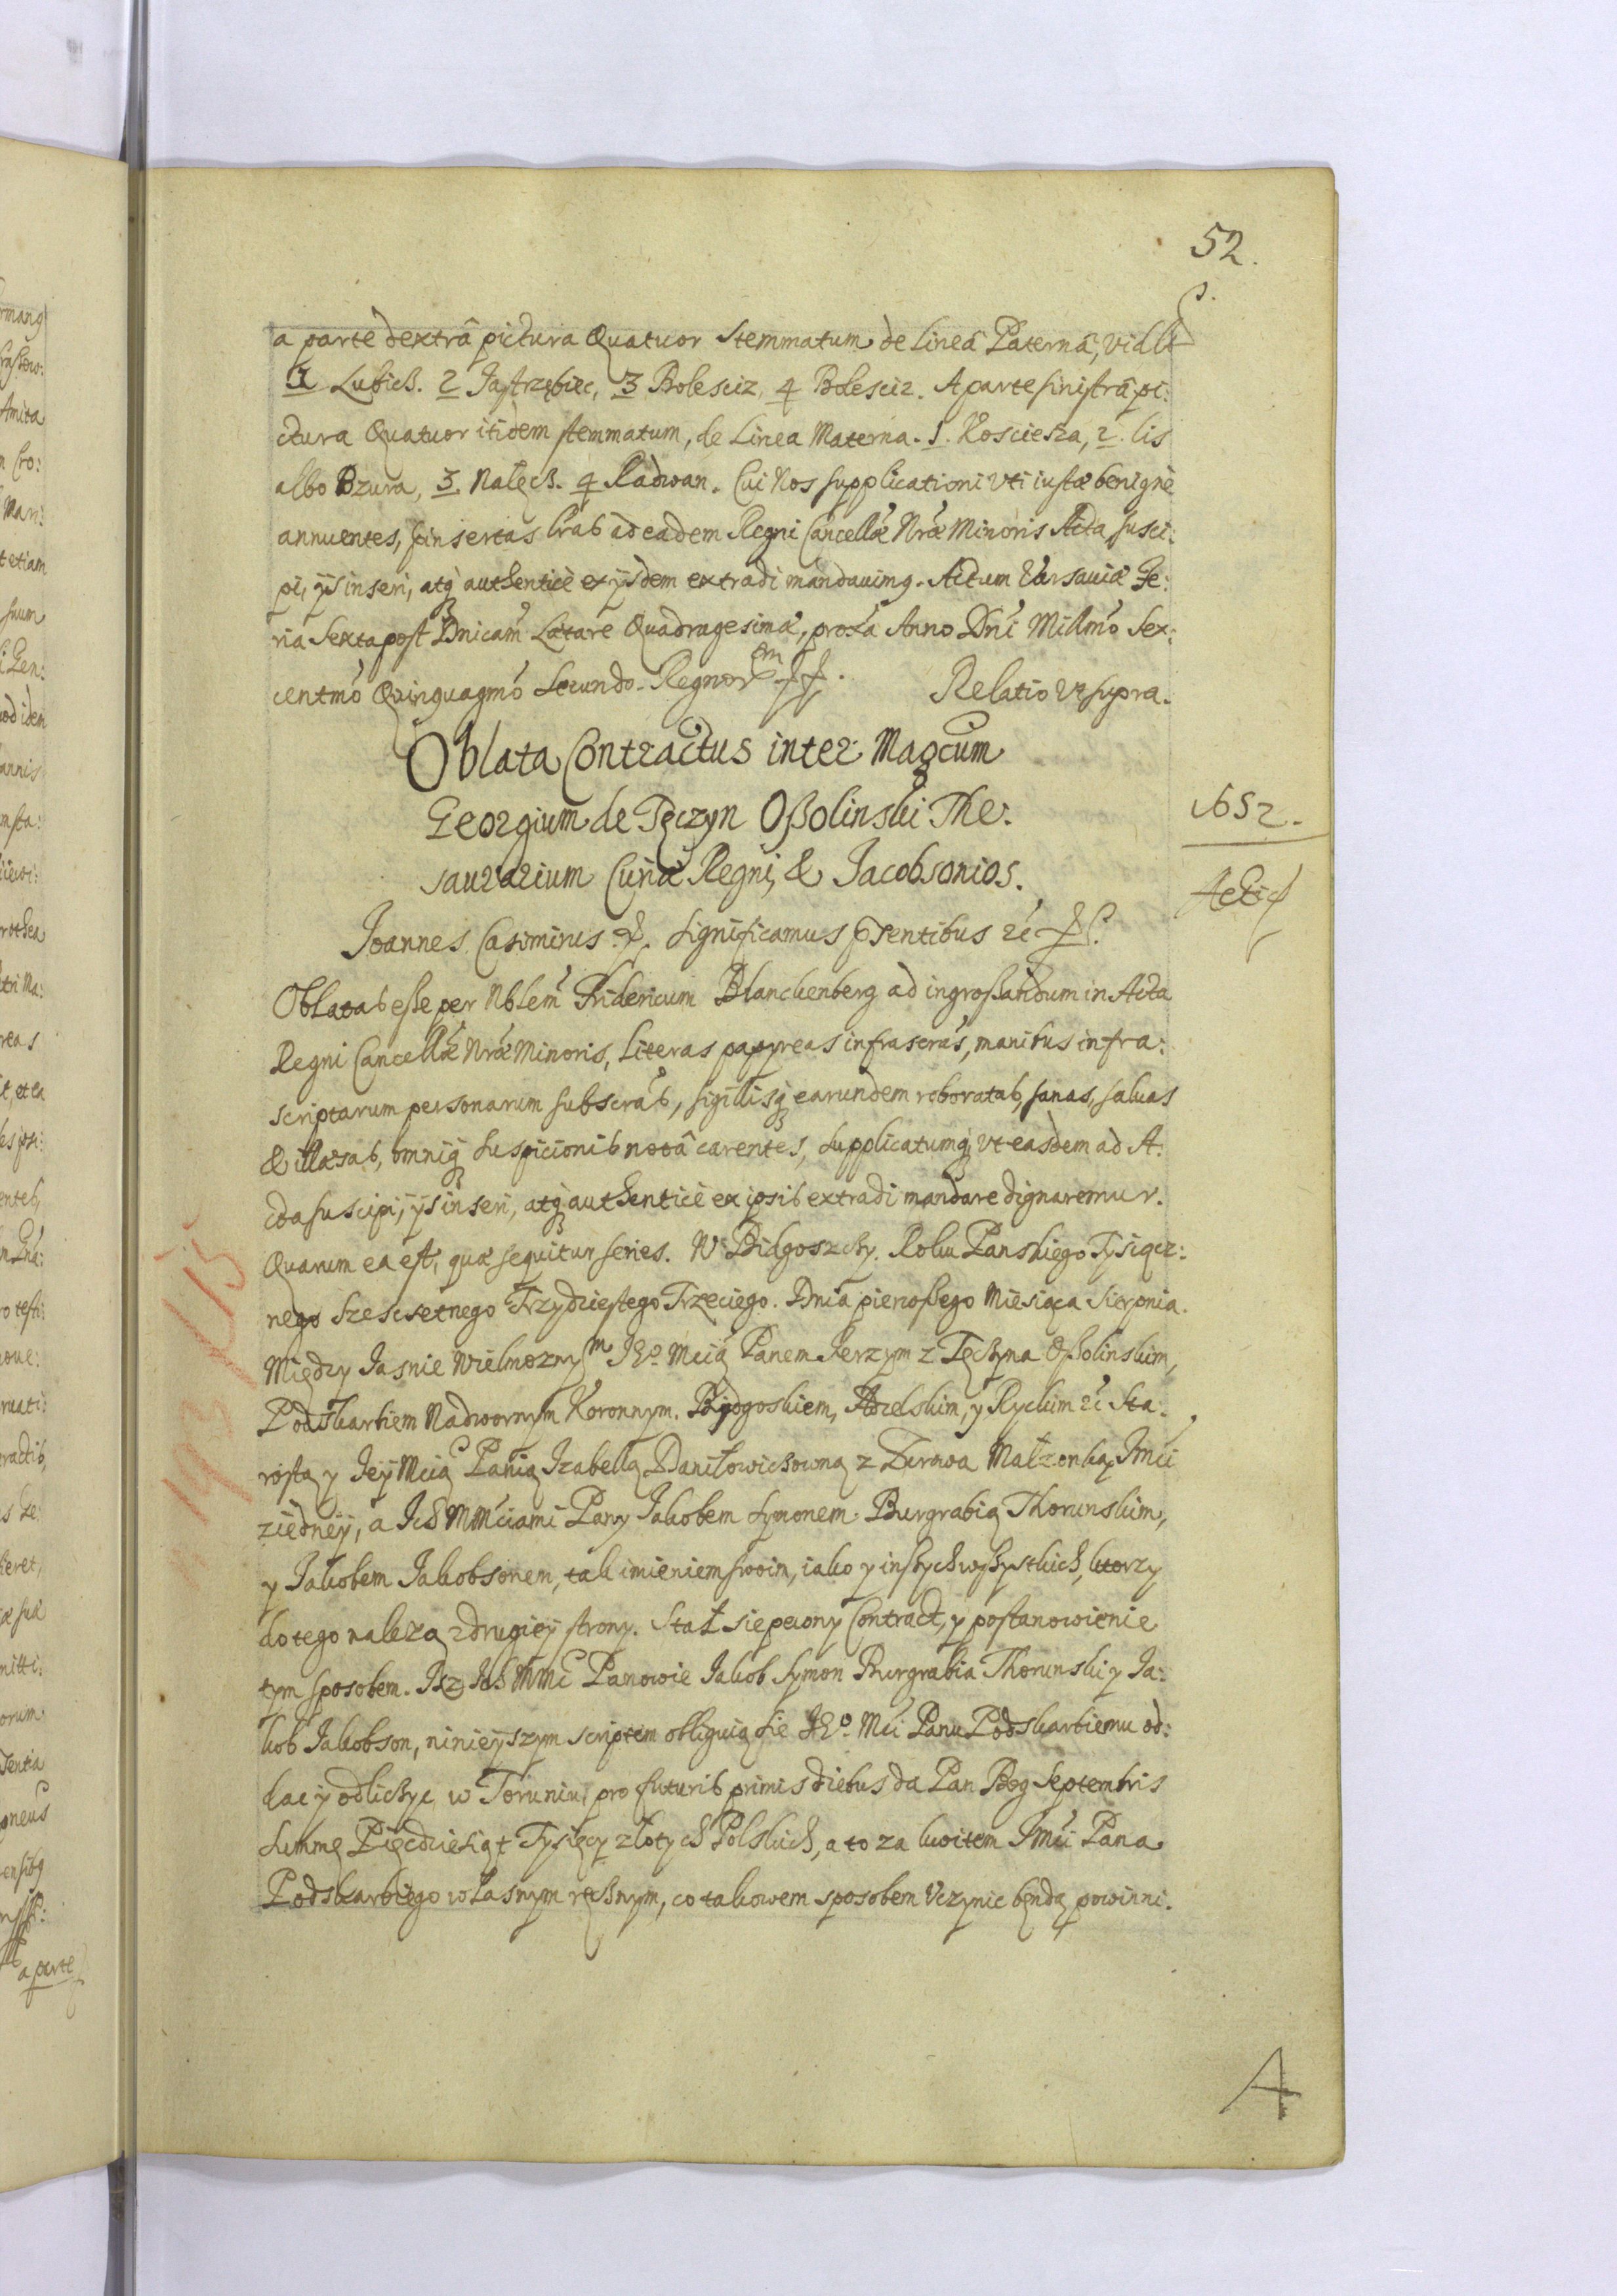 52.
a parte dextrâ pictura Quatuor Stemmatum de Linea Paterna, vidlt
1 Lubicz. 2 Jastrzębiec, 3 Bolesciz, 4 Bolesciz. A parte sinistrâ pi:
ctura Quatuor itidem stemmatum, de Linea Materna. 1. Koscieszа, 2. Lis
albo Bzura, 3. Nałęcz. 4 Radwan. Cui Nos supplicationi vti iustæ benignè
annuentes, pinsertas lras ad eadem Regni Cancellæ Nræ Minoris Acta susci:
pi, ijs inseri, atq authenticè ex ijsdem extradi mandauimg. Actum Varsauiæ Fe:
ria Sexta post Dnicam Lætare Quadragesimæ, proxa Anno Dni Millmo Sex:
centmo Quinquagmo Secundo. Regnor
Relatio vt supra.
Oblata Contractus inter Magcum
Georgium de Tęczyn Oßolinski The:
saurarium Curiæ Regni, & Jacobsonios.
1652.
Joannes Casimirus &. Significamus pntibus
Oblatas eße per Nblem Fridericum Blanckenberg ad ingroßandum in Acta
Regni Cancellæ Nræ Minoris, Literas papyreas infrascras, manibus infra:
scriptarum personarum subscras, sigillisq earundem roboratas, sanas, saluas
& illæsas, omniq suspicionis notâ carentes, supplicatumq vt easdem ad A:
cta suscipi, ijs inseri, atq authenticè ex ipsis extradi mandare dignaremur.
Quarum ea est, quæ sequitur series. W Bidgoszczy. Roku Panskiego Tysiącz:
nego Szescsetnego Trzydziestego Trzeciego. Dnia pierwßego Miesiąca Sierpnia.
Między Jasnie Wielmoznym Jeo Mcią Panem Jerzym z Tęczyna Oßolinskim,
Podskarbiem Nadwornym Koronnym. Bydgoskiem, Adzelskim, y Ryckim &c Sta:
rostą y Jeÿ Mcią Panią Izabellą Daniłowiczowną z Zurowa Małzonką Jmci
ziedneÿ, a Ich MMciami Pany Jakobem Symonem Burgrabią Thorunskim,
y Jakobem Jakobsonem, tak imieniem swoim, iako y inszych wszystkich, ktorzy
do tego naleza zdrugieÿ strony. Stał sie pewny Contract, y postanowienie
tym sposobem. Jsz Ich MMc Panowie Jakob Symon Burgrabia Thorunski y Ja:
kob Jakobson, ninieÿszym scriptem obliguią sie Jeo Mci Panu Podskarbiemu od:
dac ÿ odliczyc w Toruniu, pro futuris primis diebus da Pan Bog Septembris
summę Pięcdziesiąt Tysięcy złotych Polskich, a to za kwitem Jmci Pana
Podskarbiego własnym ręcznym, co takowem sposobem Vczynic będą powinni.
A